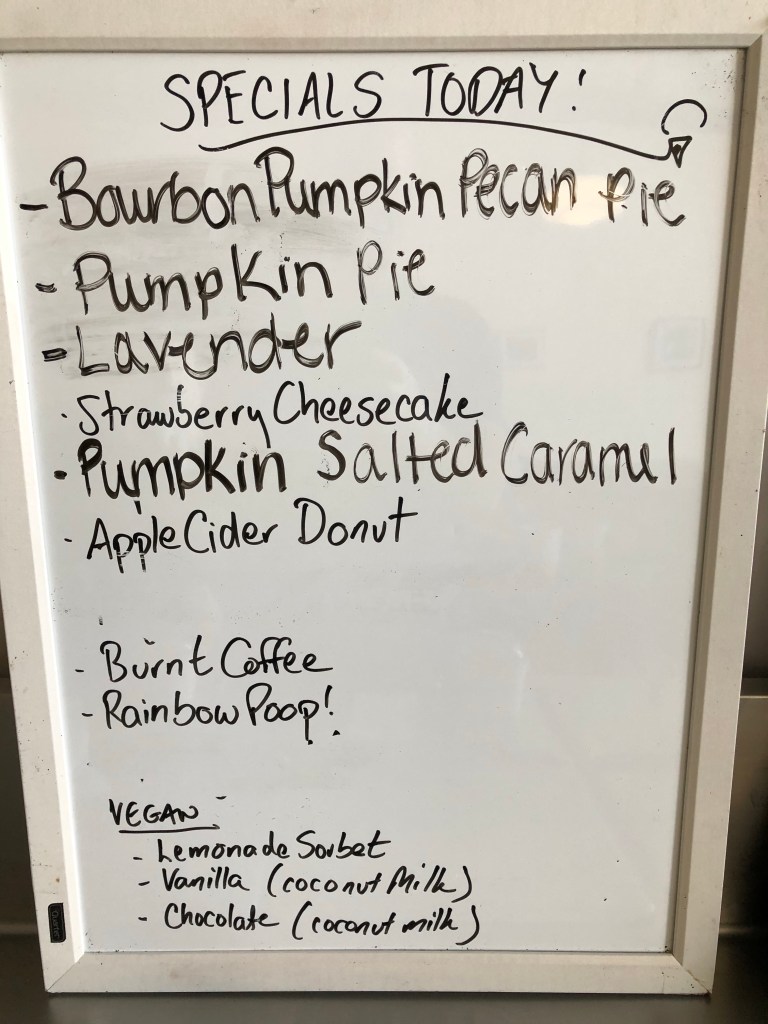 SPECIALS TODAY!
- Bourbon Pumpkin Pecan Pie
- Pumpkin Pie
- Lavender
- Strawberry Cheesecake
- Pumpkin Salted Caramel
- Apple Cider Donut
- Burnt Coffee
- Rainbow Poop!
VEGAN
- Lemonade Sorbet
- Vanilla (coconut Milk)
- Chocolate (coconut milk)